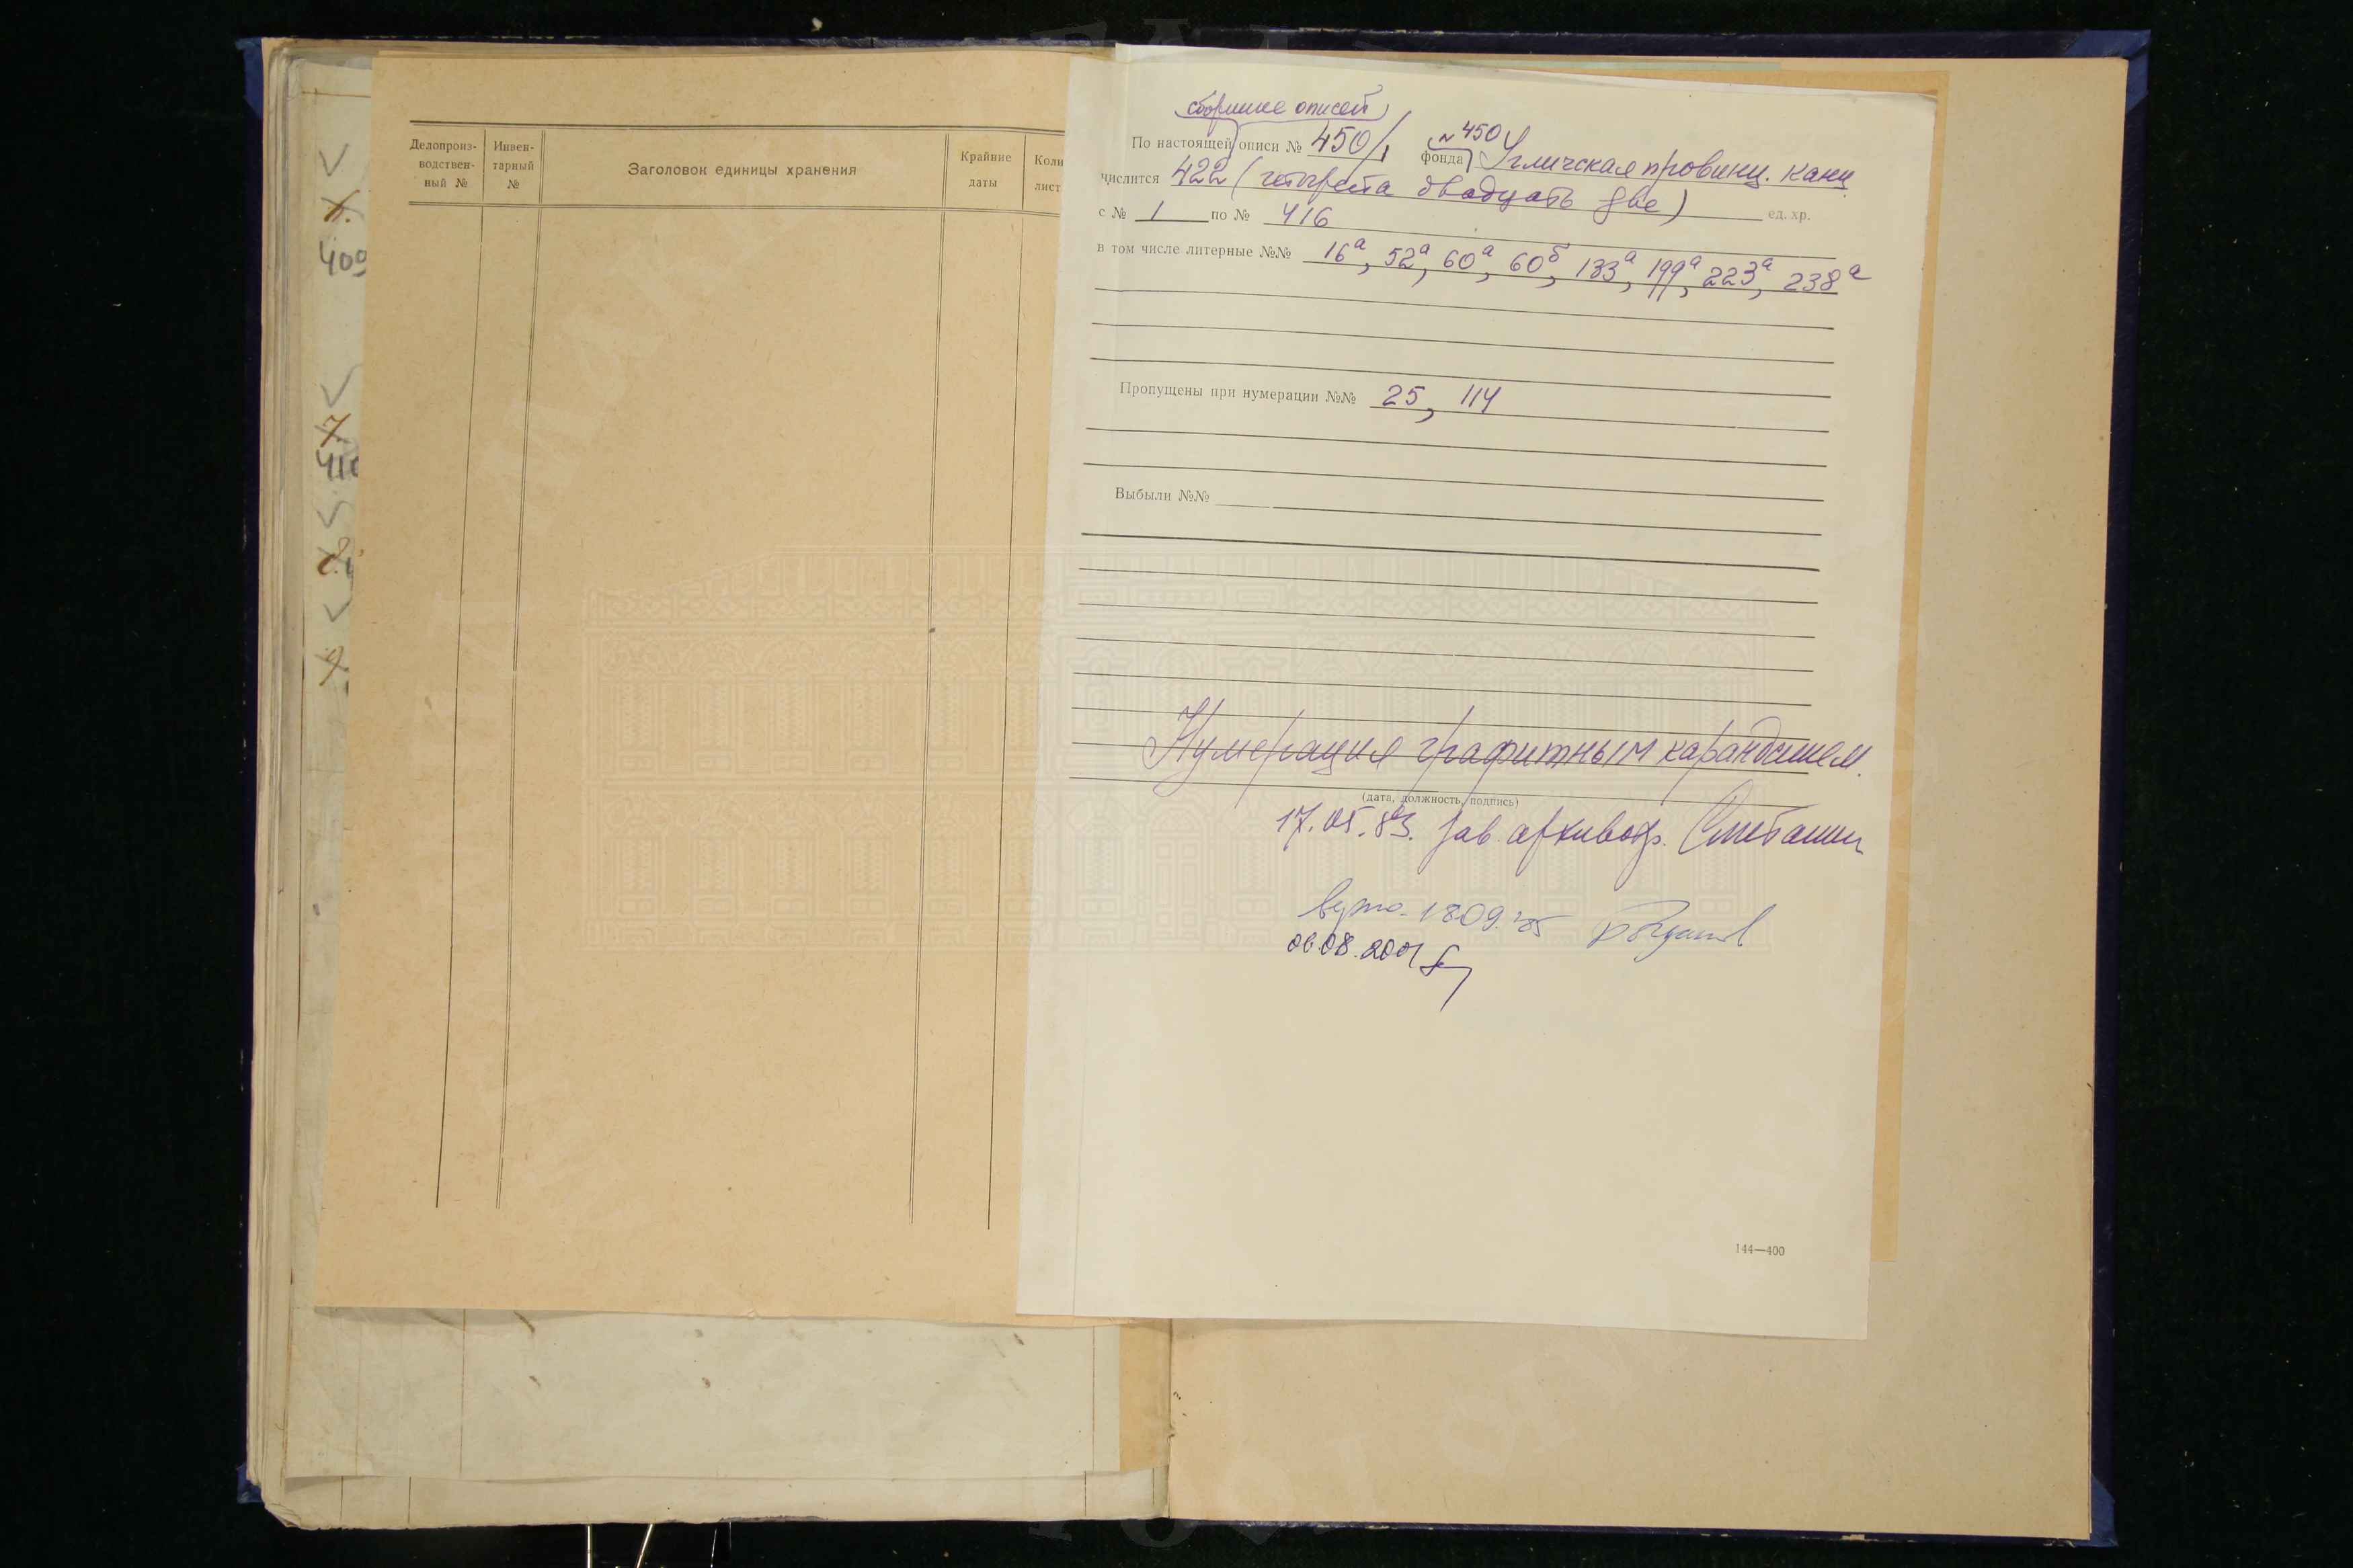 400
410
Делопроиз-
водствен-
ный №
Инвен-
тарный
№
Заголовок единицы хранения
Крайние
даты
Коли
лист
сборнике описей
По настоящей описи № 450/1 фонда № 450 Угличская провинц. канц
числится 422 (четыреста двадцать две) ед. хр.
с № 1 по № 416
в том числе литерные №№ 16а, 52а, 60а, 60б, 133а, 199а, 223а, 238а
Пропущены при нумерации №№ 25, 114
Выбыли №№
Нумерация графитным карандашем.
(дата, должность, подпись)
17.05.83. зав. архивохр.
06.08.2001
144—400